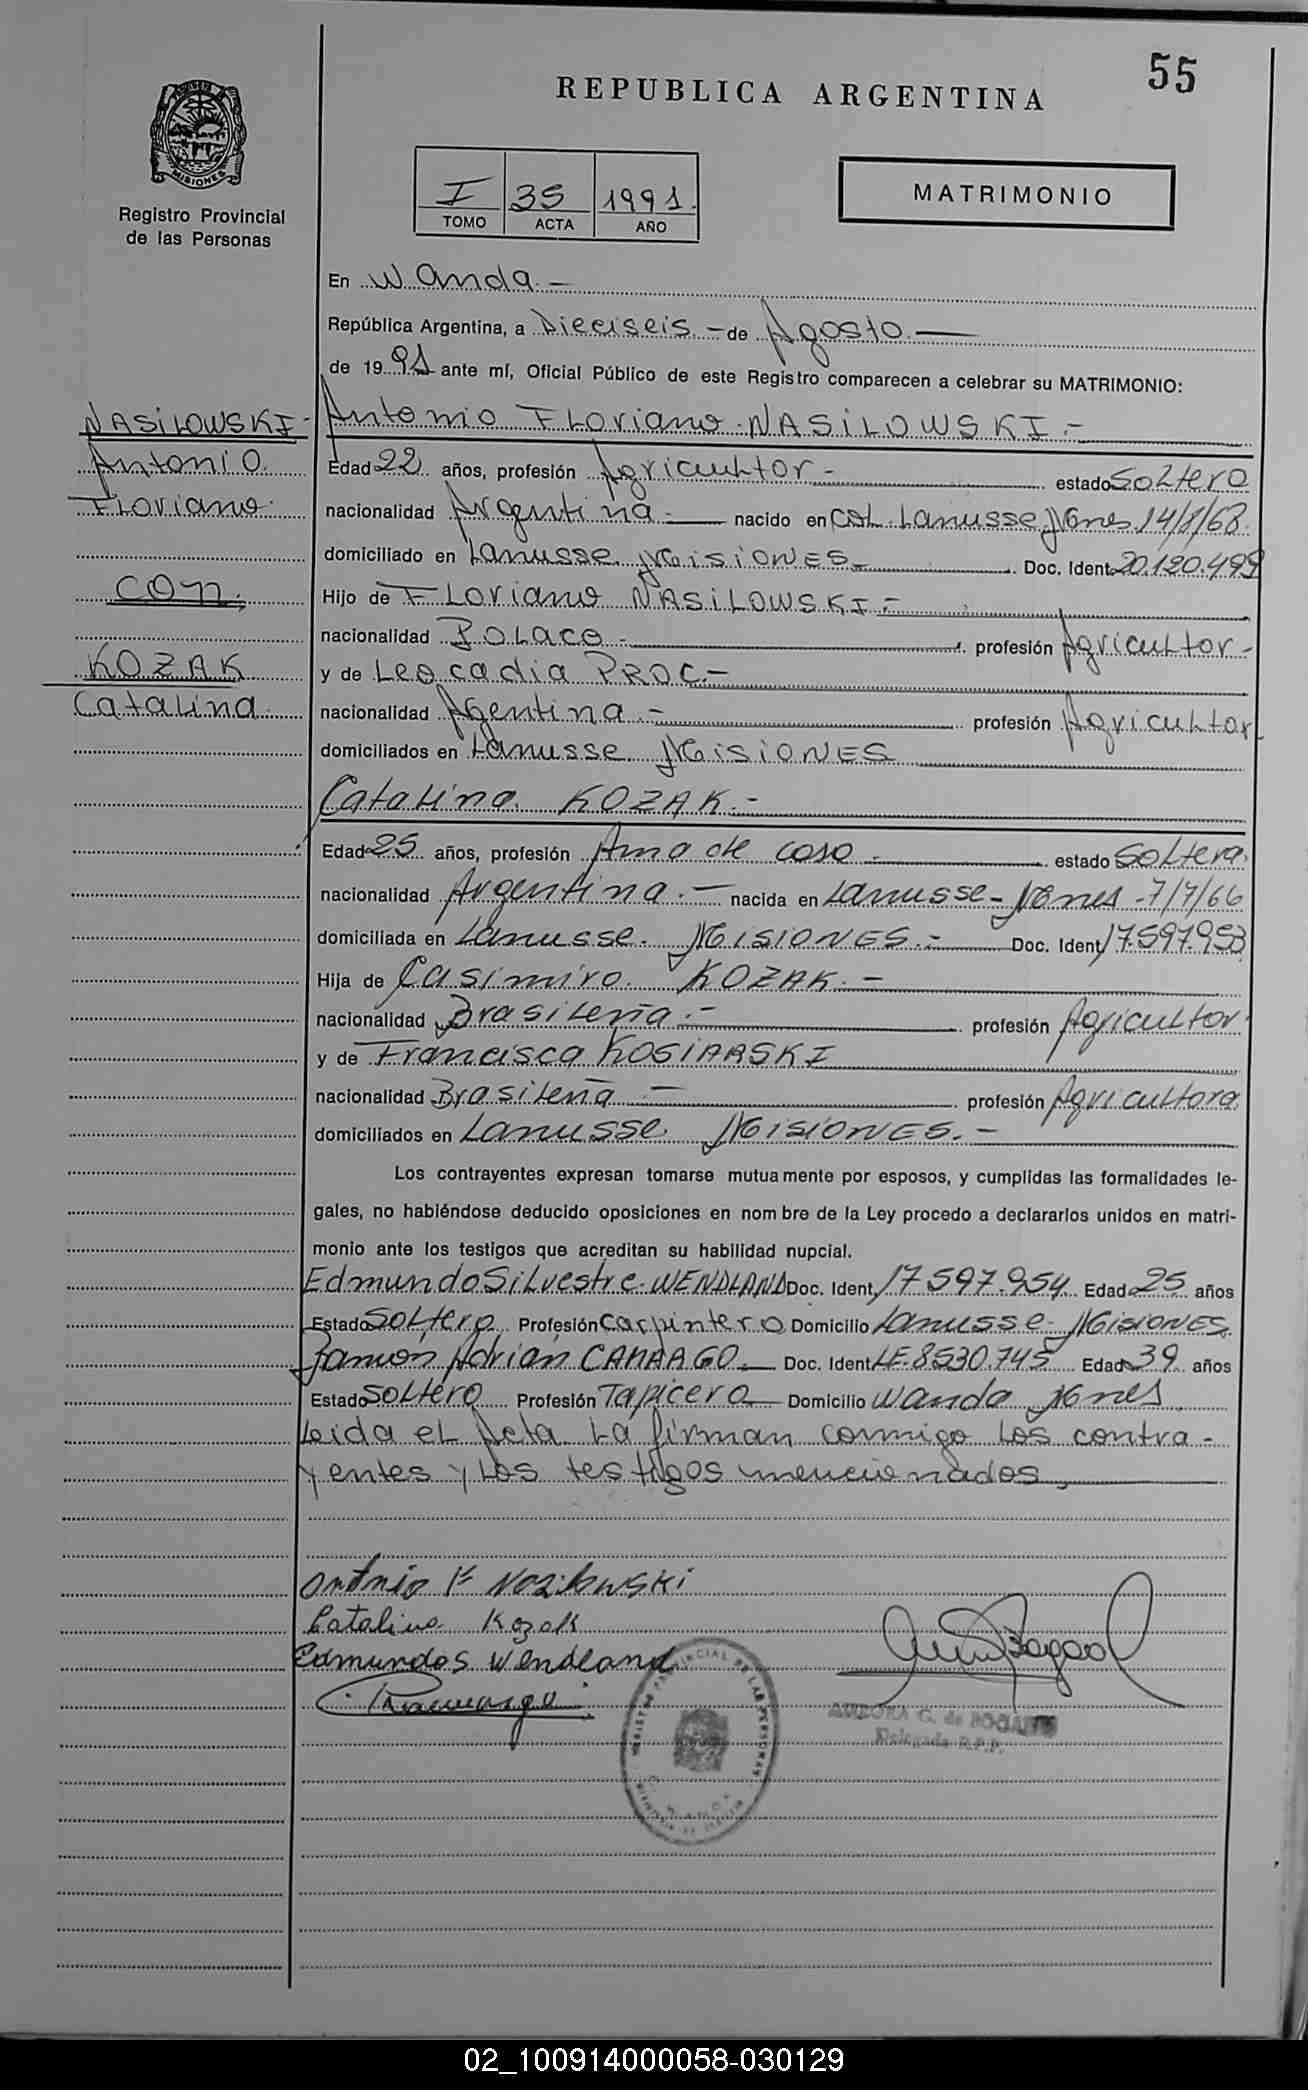 55
REPUBLICA ARGENTINA
MISIONES
Registro Provincial
de las Personas
I 35 1991.
TOMO ACTA AÑO
MATRIMONIO
En Wanda.-
República Argentina, a Dieciseis.- de Agosto.
de 1991 ante mí, Oficial Público de este Registro comparecen a celebrar su MATRIMONIO:
NASILOWSKI-
Antonio
Floriano.
con,
KOZAK
Catalina.
Antonio Floriano NASILOWSKI.-
Edad 22 años, profesión Agricultor- estado Soltero
nacionalidad Argentina.- nacido en Col. Lanusse Mnes. 14/8/68.
domiciliado en Lanusse. Misiones- Doc. Ident. 20.120.499
Hijo de Floriano NASILOWSKI.-
nacionalidad Polaco.- profesión Agricultor-
y de Leocadia PROC.-
nacionalidad Agentina.- profesión Agricultor
domiciliados en Lanusse. Misiones
Catalina KOZAK.-
Edad 25 años, profesión Ama de casa.- estado Soltera.
nacionalidad Argentina.- nacida en Lanusse- Mnes -7/7/66
domiciliada en Lanusse. Misiones.- Doc. Ident. 17.597.953
Hija de Casimiro KOZAK.-
nacionalidad Brasileña.- profesión Agricultor.
y de Francisca KOSIARSKI
nacionalidad Brasileña- profesión Agricultora
domiciliados en Lanusse Misiones.-
Los contrayentes expresan tomarse mutuamente por esposos, y cumplidas las formalidades le-
gales, no habiéndose deducido oposiciones en nombre de la Ley procedo a declararlos unidos en matri-
monio ante los testigos que acreditan su habilidad nupcial.
Edmundo Silvestre WENDLAND Doc. Ident. 17.597.954 Edad 25 años
Estado Soltero Profesión Carpintero Domicilio Lanusse- Misiones
Ramon Adrian CAMARGO. Doc. Ident. LE.8530.745 Edad 39 años
Estado Soltero Profesión Tapicero Domicilio Wanda Mnes
Leida el Acta La firman conmigo los contra-
yentes y los testigos mencionados,
Antonio F Nazilowski
Catalina Kozak
Edmundos Wendland
AURORA G. de BOGADO
Delegada R.P.P.
REGISTRO PROVINCIAL DE LAS PERSONAS
02_100914000058-030129